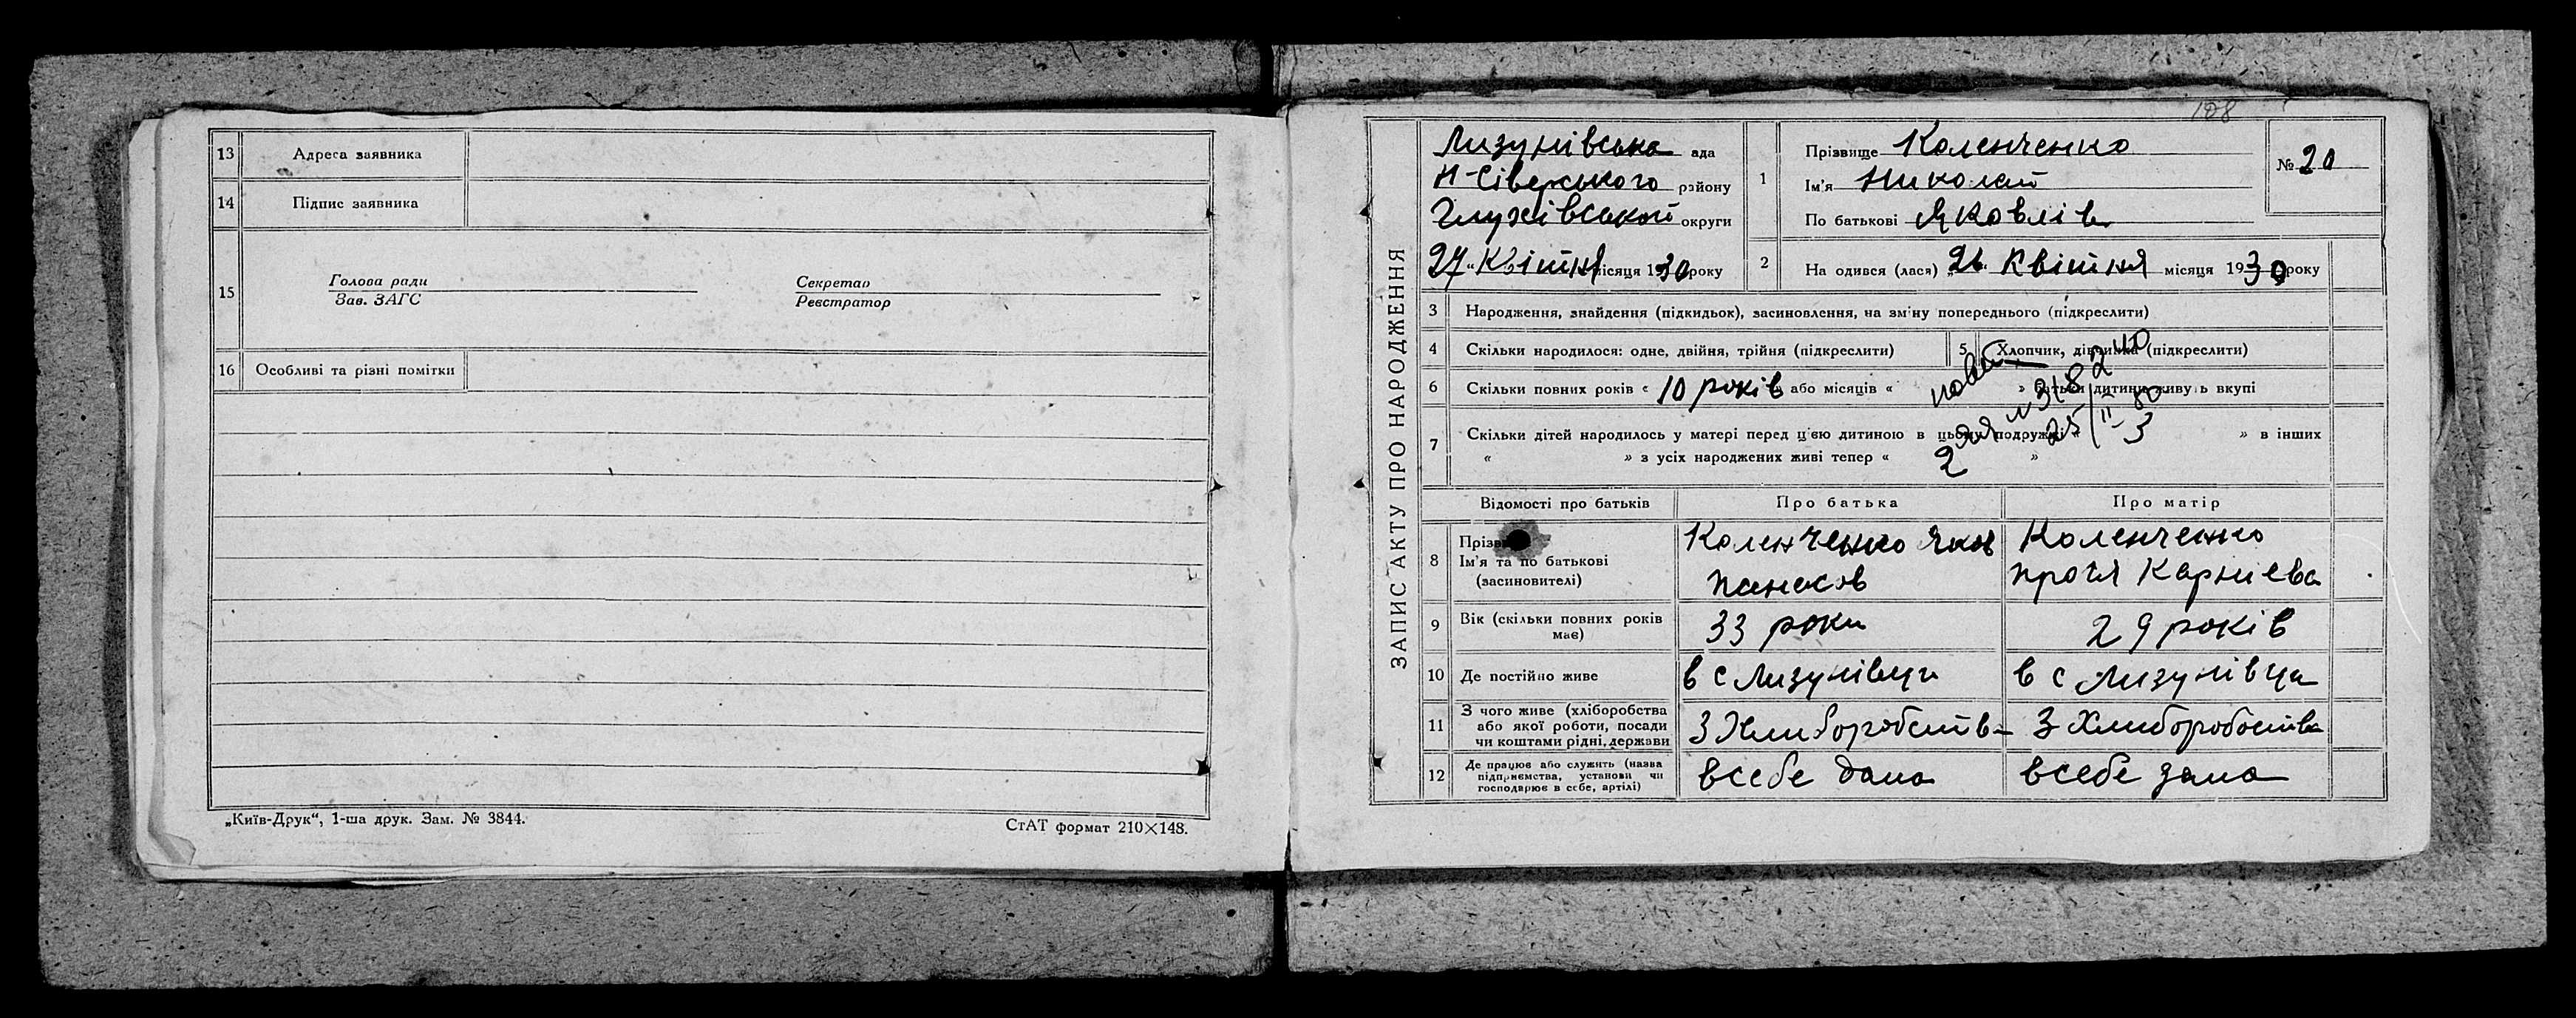 13 Адреса заявника
14 Підпис заявника
15 Голова ради Секретар
Зав. ЗАГС Реєстратор
16 Особливі та різні помітки
„Київ-Друк“, 1-ша друк. Зам. № 3844.
СтАТ формат 210×148.
108
ЗАПИС АКТУ ПРО НАРОДЖЕННЯ
Лизунівська ада
Н-Сіверського району
Глухівській округи
27 “ Квітня місяця 1930 року
1 Прізвище Коленченко
Ім'я Николай
По батькові Яковлів
№ 20
2 На одився (лася) „ 26 “ Квітня місяця 1930 року
3 Народження, знайдення (підкидьок), засиновлення, на зміну попереднього (підкреслити)
4 Скільки народилося: одне, двійня, трійня (підкреслити)
5 Хлопчик, дівчинка (підкреслити)
6 Скільки повних років « 10 років » або місяців « » батьки дитини живуть вкупі
7 Скільки дітей народилось у матері перед цією дитиною в цьому подружжі « 3 » в інших
« » з усіх народжених живі тепер « 2 »
25/II-80
Відомості про батьків Про батька Про матір
8 Прізв
Ім'я та по батькові
(засиновителі)
Коленченко Яков
Панасов
Коленченко
Карниева
9 Вік (скільки повних років має) 33 роки 29 років
10 Де постійно живе в с Лизунівци в с Лизунівца
11 З чого живе (хліборобства
або якої роботи, посади
чи коштами рідні, держави
З Хлиборобств З Хлиборобоства
12 Де працює або служить (назва
підприємства, установи чи
господарює в себе, артілі)
всебе дома всебе дома